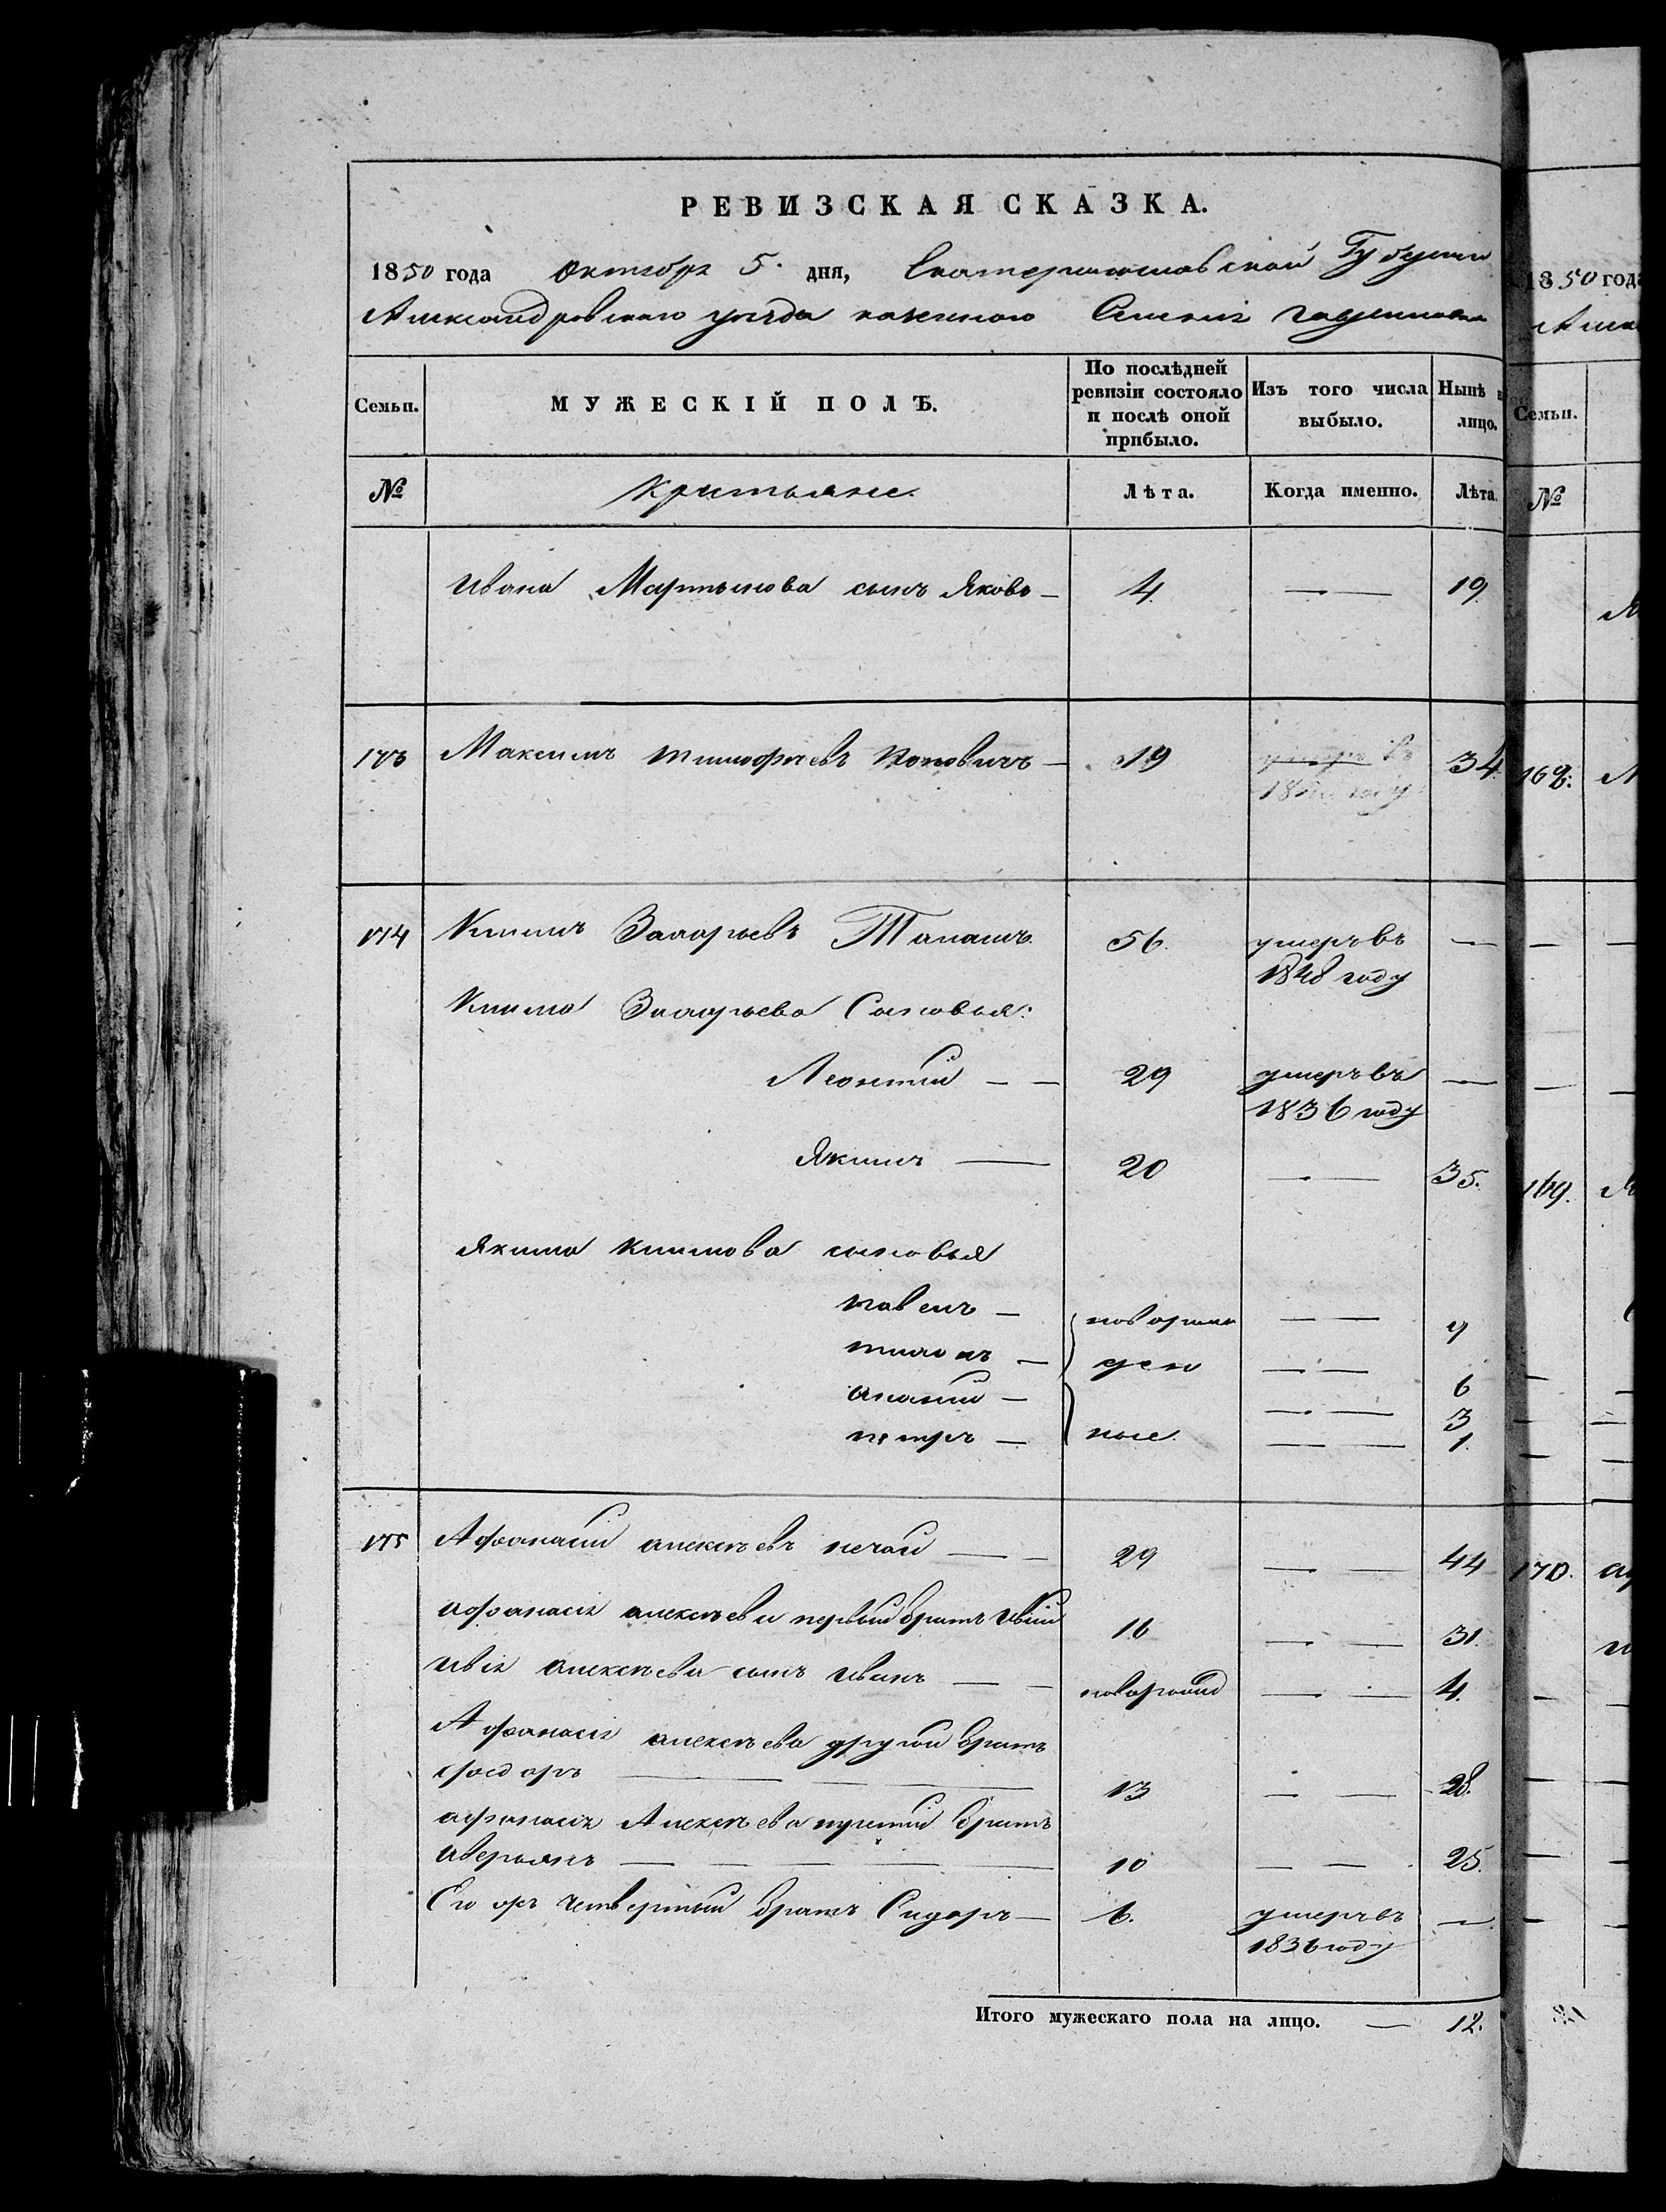 РЕВИЗСКАЯ СКАЗКА.
1850 года Октября 5. дня, Екатеринославской Губернии
Александровскаго уезда казенного Селения
Семьи. МУЖЕСКІЙ ПОЛЪ. По послѣдней ревизіи состояло и послѣ оной прибыло. Изъ того числа выбыло. Нынѣ на лицо.
№ Крестьяне. Лѣта. Когда именно. Лѣта.
Ивана Мартынова сынъ Яковъ — 4. — — 19.
173 Максимъ Тимофѣевъ — 19 34.
174 Климъ Захарьевъ 56. умеръ въ —
1848 году
Клима Захарьева Сыновья:
Леонтій — — 29 умеръ въ —
1836 году
Якимъ — 20 — — 35.
Якима Климова сыновья
Павелъ — новорож — — 9
Тихонъ — ден — — 6
Ананій — — — 3
Петръ — ные. — — 1.
175 Афанасій Алексѣевъ Нечай — — 29 — — 44
Афанасія Алексѣева первый братъ Ивій 16 — — 31.
Ивія Алексѣева сынъ Иванъ — — новорожд — — 4.
Афанасія Алексѣева другой братъ
Федоръ — — — 13 — — 28.
Афанасія Алексѣева третій братъ
Аверьянъ — — — — — 10 — — 25.
Его жъ четвертый братъ Сидоръ — 6. умеръ въ —
1836 году
Итого мужескаго пола на лицо. — 12.
1850 года
Семьи.
№
168.
169.
170.